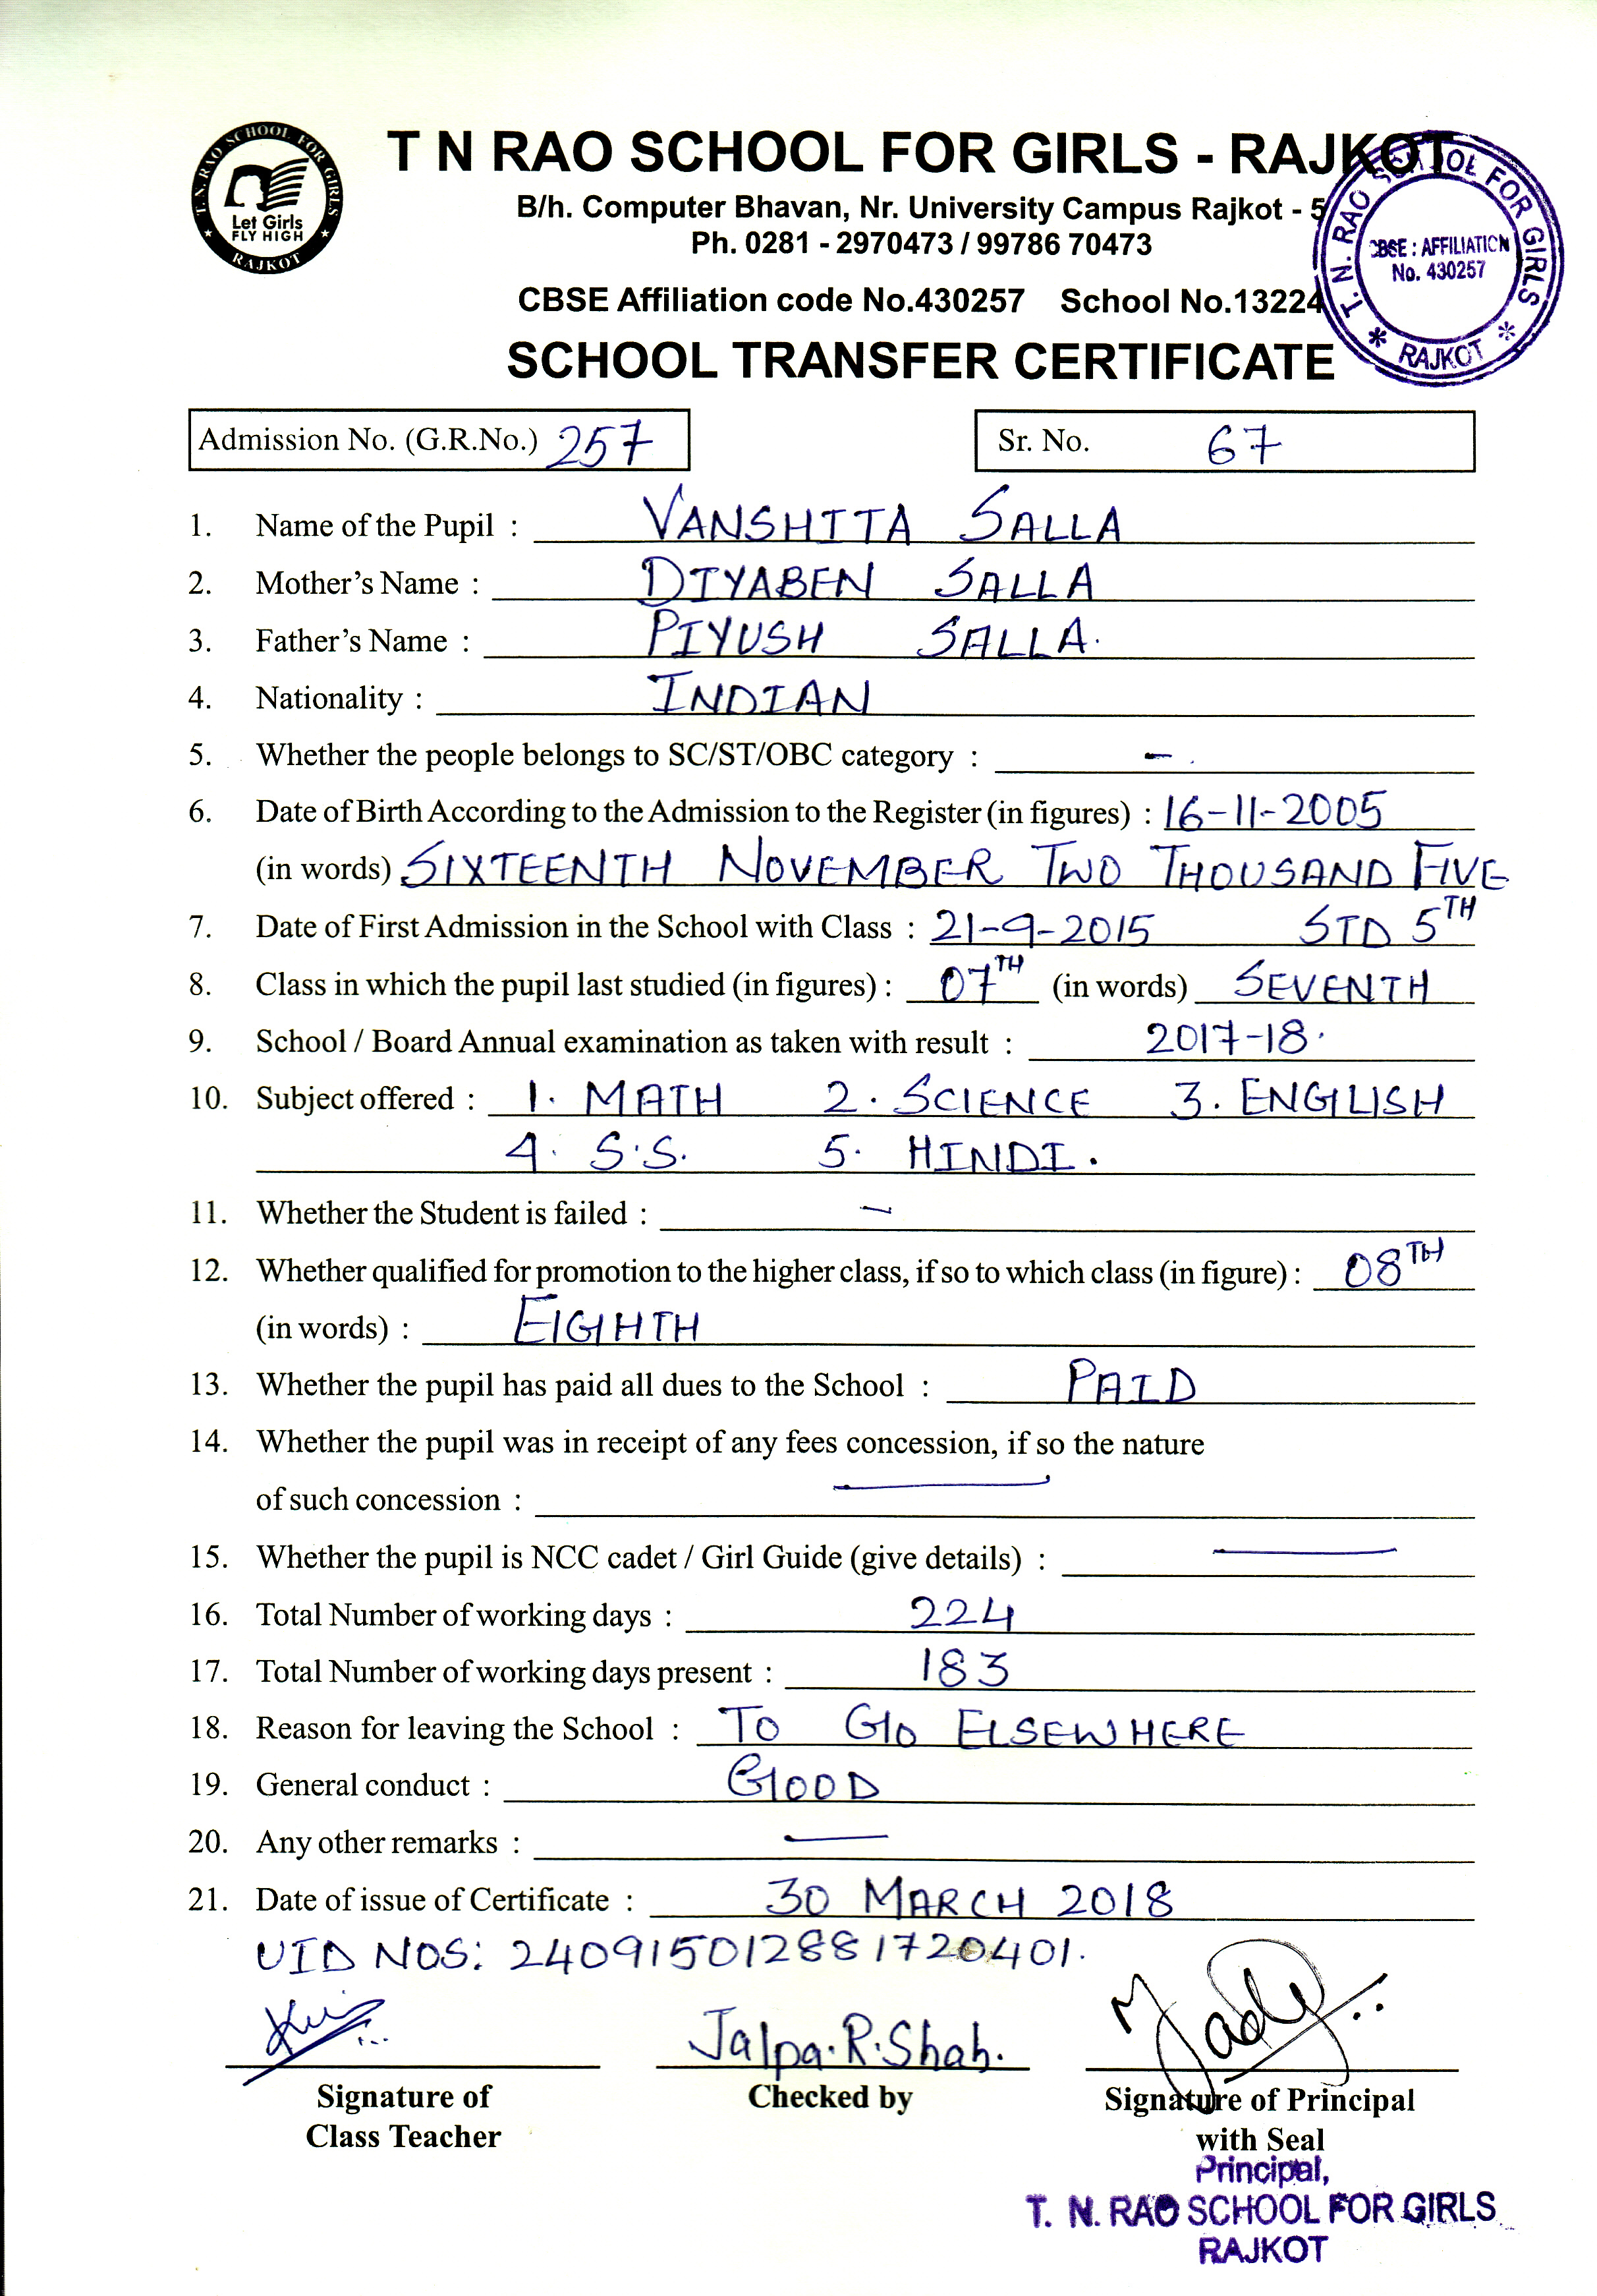 T. N. RAO SCHOOL FOR GIRLS
Let Girls
FLY HIGH
RAJKOT
T N RAO SCHOOL FOR GIRLS - RAJKOT
B/h. Computer Bhavan, Nr. University Campus Rajkot - 5
Ph. 0281 - 2970473 / 99786 70473
CBSE Affiliation code No.430257 School No.13224
SCHOOL TRANSFER CERTIFICATE
T. N. RAO SCHOOL FOR GIRLS
CBSE : AFFILIATION
No. 430257
* RAJKOT *
Admission No. (G.R.No.) 257
Sr. No. 67
1. Name of the Pupil : VANSHITA SALLA
2. Mother's Name : DIYABEN SALLA
3. Father's Name : PIYUSH SALLA.
4. Nationality : INDIAN
5. Whether the people belongs to SC/ST/OBC category : -
6. Date of Birth According to the Admission to the Register (in figures) : 16-11-2005
(in words) SIXTEENTH NOVEMBER TWO THOUSAND FIVE
7. Date of First Admission in the School with Class : 21-9-2015 STD 5TH
8. Class in which the pupil last studied (in figures) : 07TH (in words) SEVENTH
9. School / Board Annual examination as taken with result : 2017-18.
10. Subject offered : 1. MATH 2. SCIENCE 3. ENGLISH
4. S.S. 5. HINDI.
11. Whether the Student is failed : -
12. Whether qualified for promotion to the higher class, if so to which class (in figure) : 08TH
(in words) : EIGHTH
13. Whether the pupil has paid all dues to the School : PAID
14. Whether the pupil was in receipt of any fees concession, if so the nature
of such concession : —
15. Whether the pupil is NCC cadet / Girl Guide (give details) : —
16. Total Number of working days : 224
17. Total Number of working days present : 183
18. Reason for leaving the School : TO GO ELSEWHERE
19. General conduct : GOOD
20. Any other remarks : —
21. Date of issue of Certificate : 30 MARCH 2018
UID NOS: 240915012881720401.
Jalpa.R.Shah.
Signature of
Class Teacher
Checked by
Signature of Principal
with Seal
Principal,
T. N. RAO SCHOOL FOR GIRLS
RAJKOT